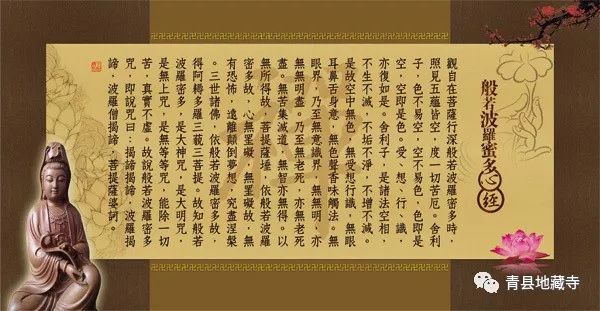 般若波羅蜜多心经
觀自在菩薩行深般若波羅蜜多時，
照見五蘊皆空，度一切苦厄。舍利
子，色不易空，空不易色，色即是
空，空即是色。受、想、行、識，
亦復如是。舍利子，是諸法空相，
不生不滅，不垢不淨，不增不減。
是故空中無色，無受想行識，無眼
耳鼻舌身意，無色聲香味觸法。無
眼界，乃至無意識界，無無明，亦
無無明盡。乃至無老死，亦無老死
盡。無苦集滅道，無智亦無得。以
無所得故，菩提薩埵，依般若波羅
密多故，心無罣礙，無罣礙故，無
有恐怖，遠離顛倒夢想，究盡涅槃
。三世諸佛，依般若波羅密多故，
得阿耨多羅三藐三菩提。故知般若
波羅密多，是大神咒，是大明咒，
是無上咒，是無等等咒，能除一切
苦，真實不虛。故說般若波羅密多
咒，即說咒曰：揭諦揭諦，波羅揭
諦，波羅僧揭諦，菩提薩婆訶。
青县地藏寺